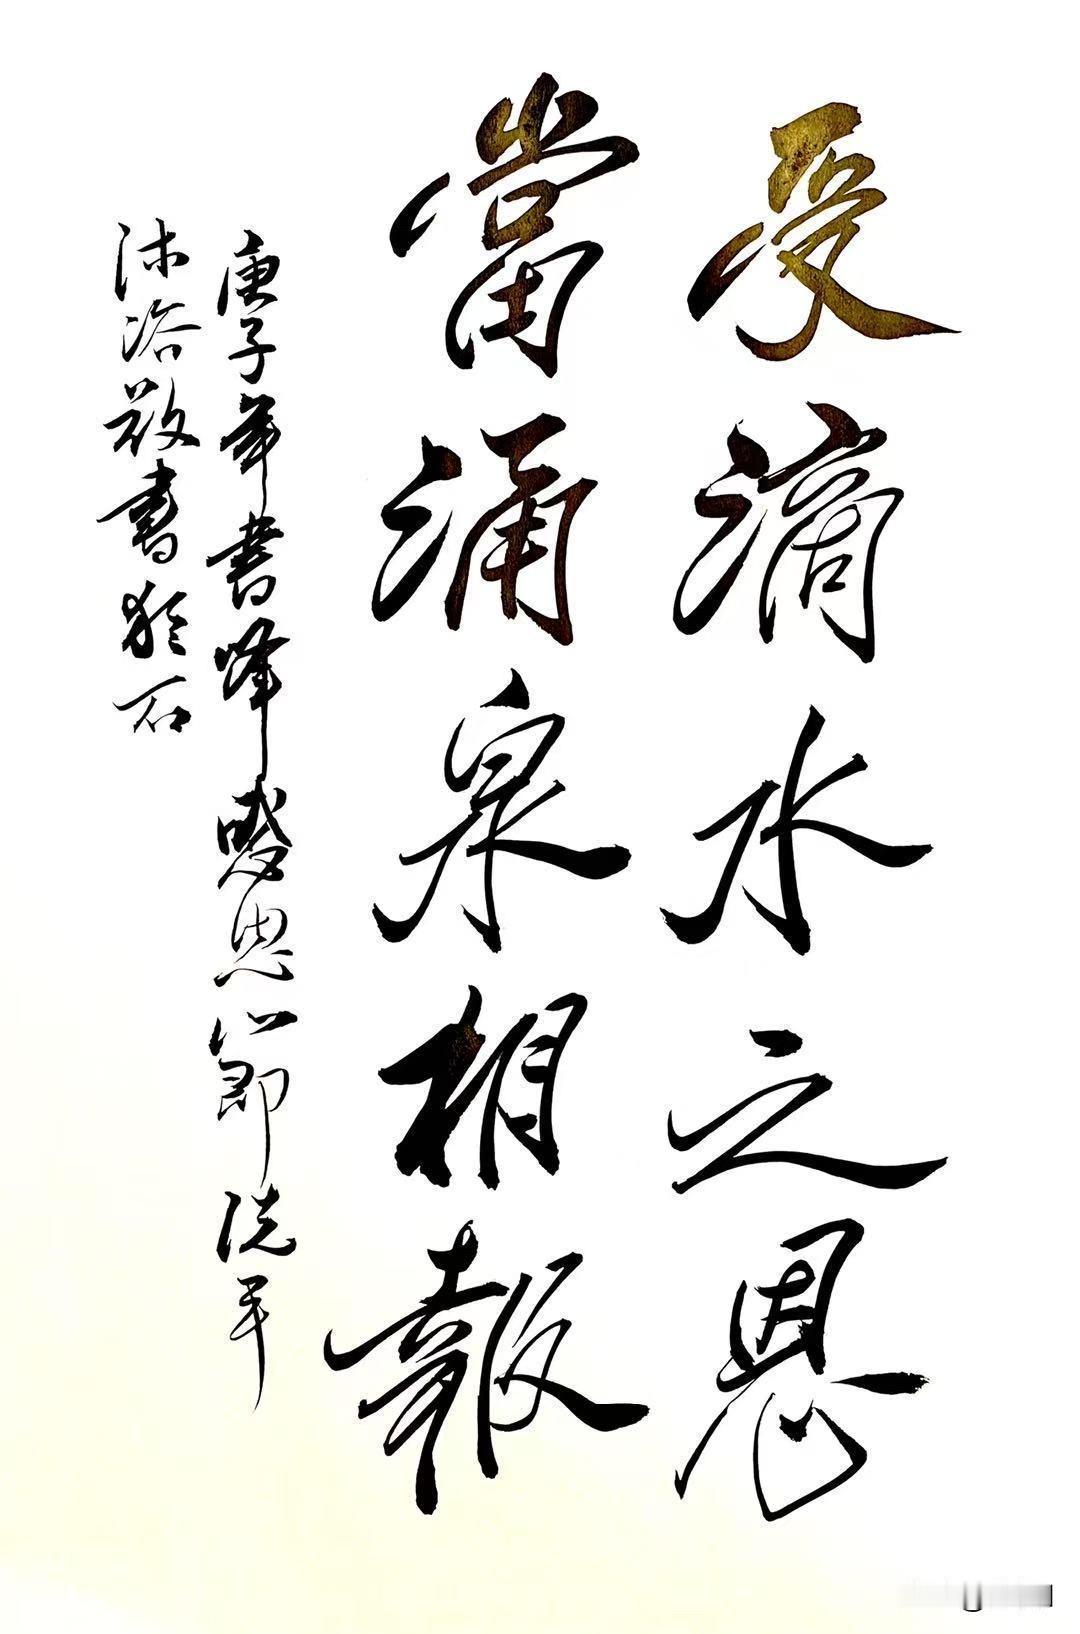 受滴水之恩
當涌泉相報
庚子年書峰感恩節洗手
沐浴敬書於石